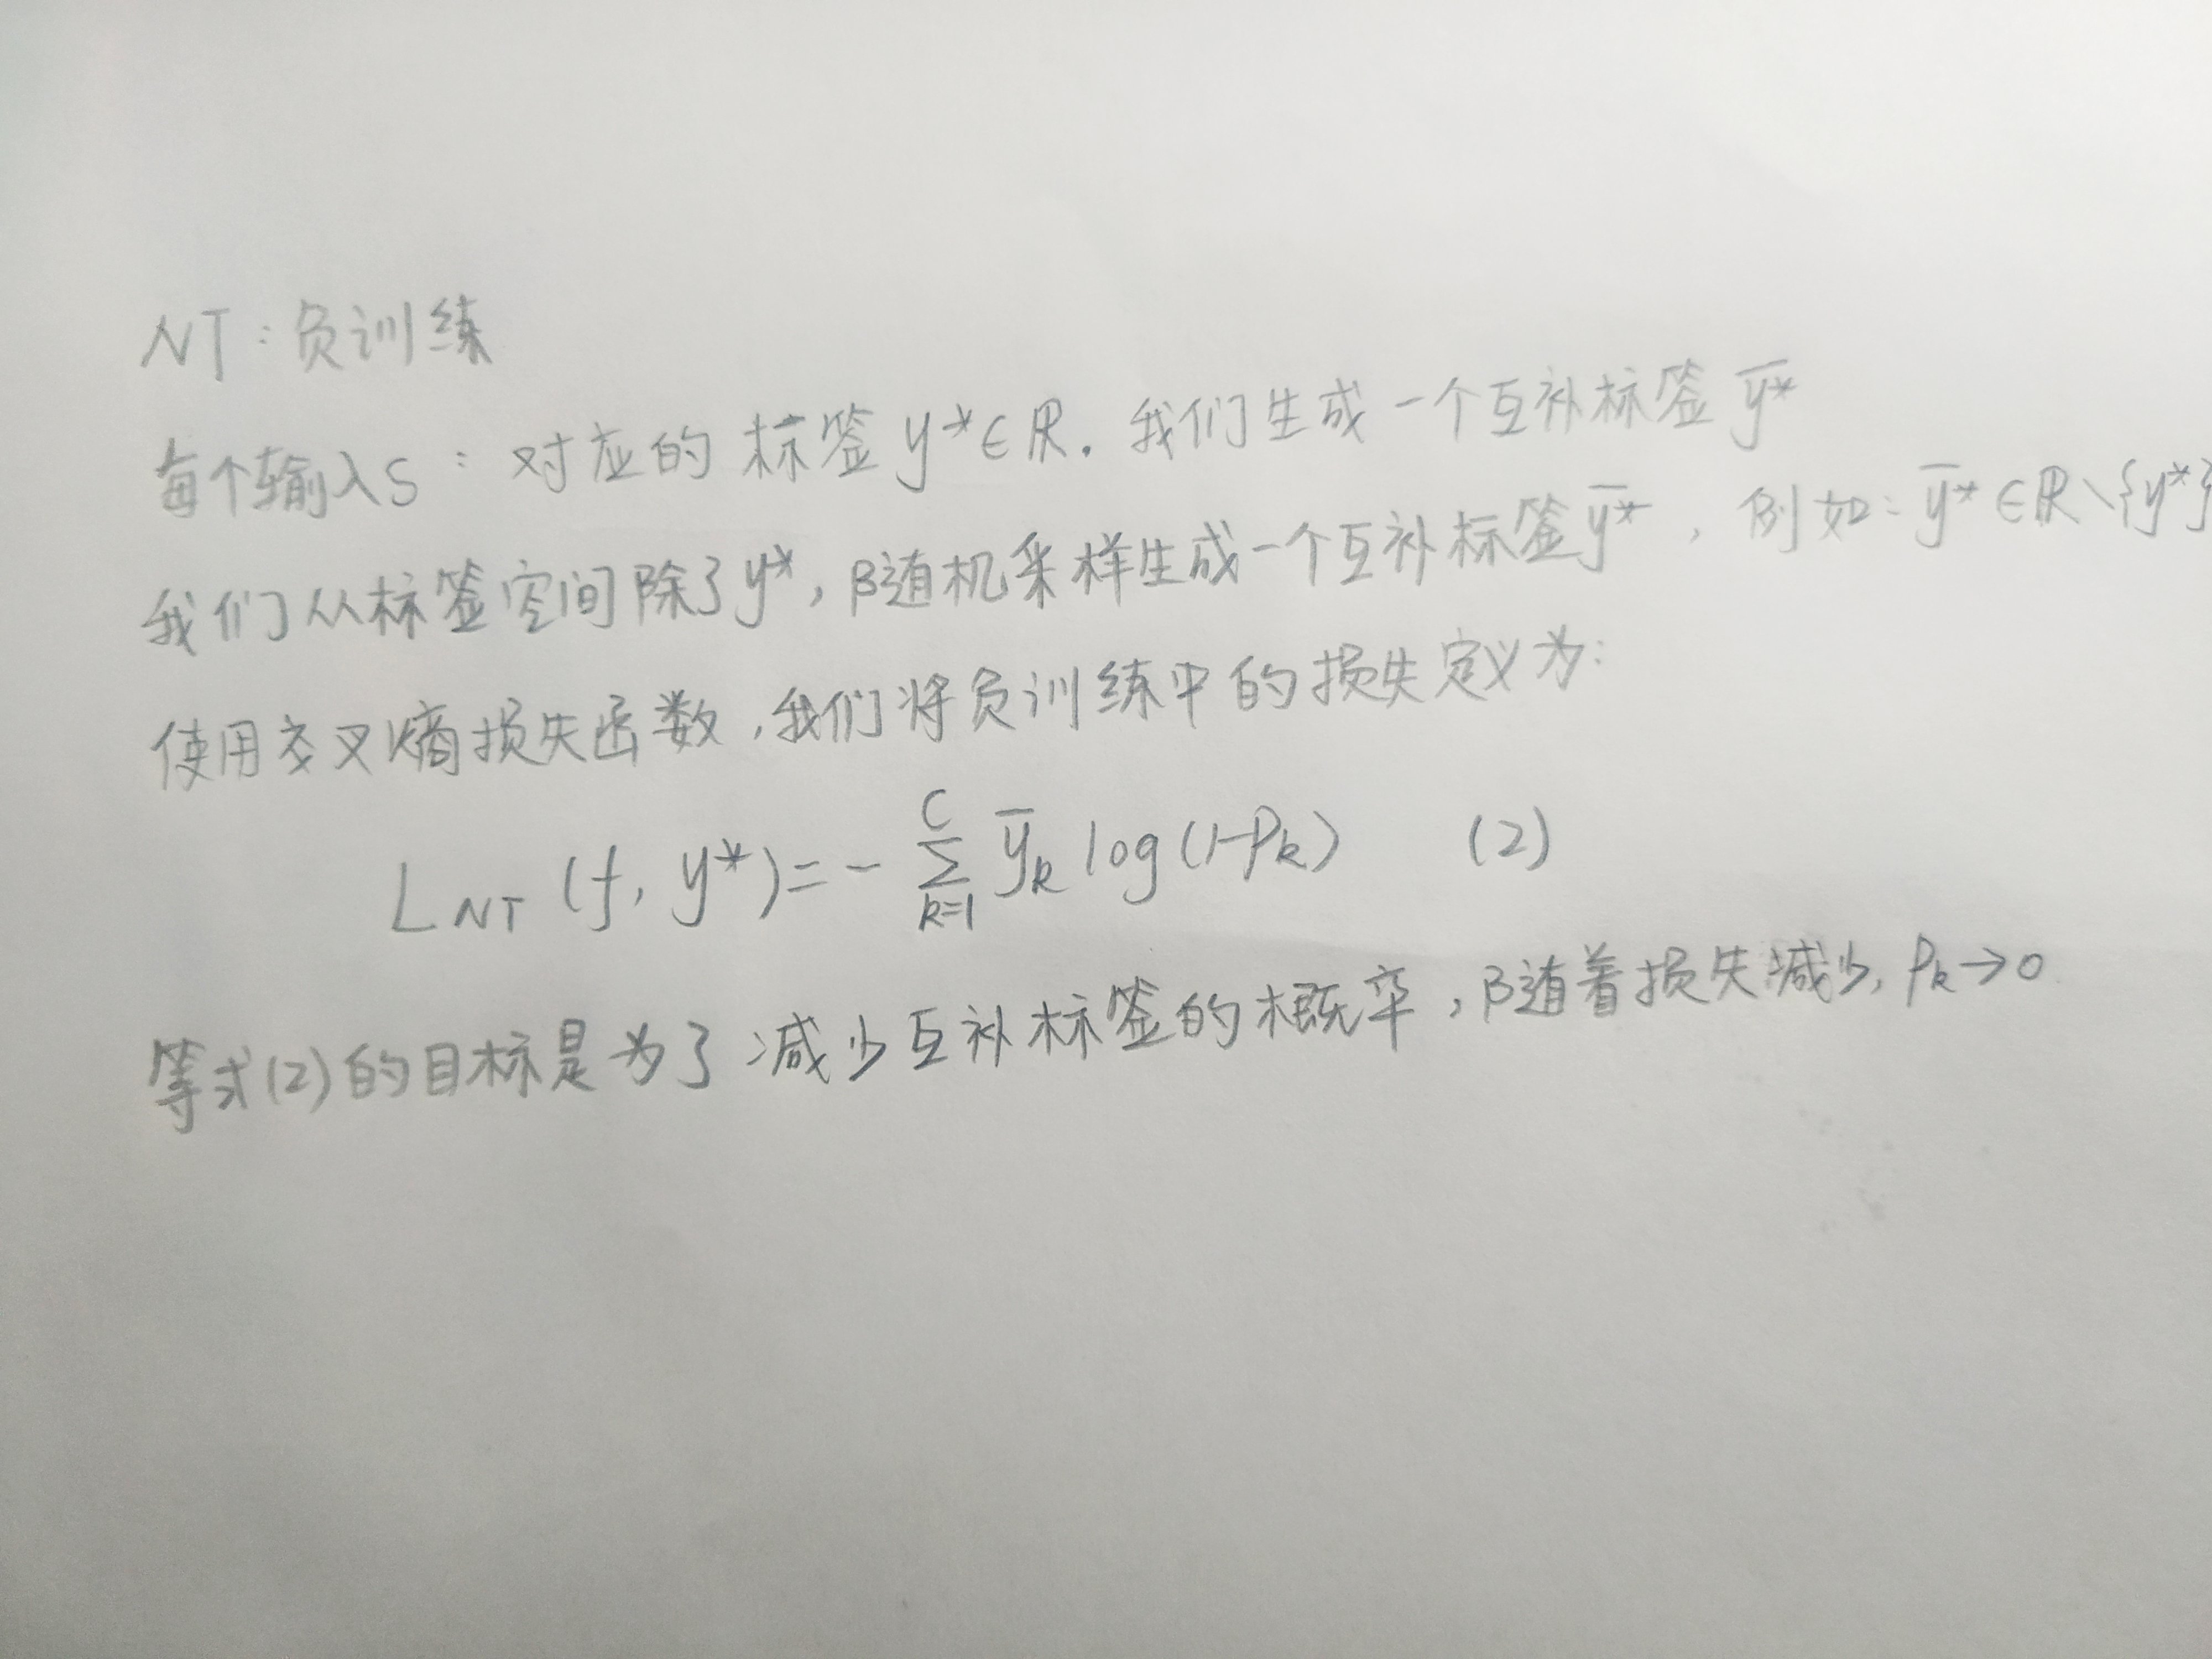 NT：负训练
每个输入S：对应的标签 y*∈ℝ. 我们生成一个互补标签 ȳ*
我们从标签空间除了y*，随机采样生成一个互补标签ȳ*，例如：ȳ*∈ℝ\{y*}
使用交叉熵损失函数，我们将负训练中的损失定义为：
L_NT (f, y*) = - ∑_{k=1}^{C} ȳ_k log(1-P_k) (2)
等式(2)的目标是为了减少互补标签的概率，随着损失减少，P_k→0